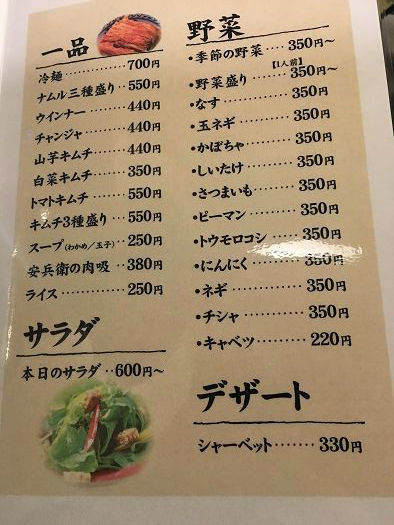 一品
冷麺············700円
ナムル三種盛り··550円
ウインナー······440円
チャンジャ······440円
山芋キムチ······440円
白菜キムチ······350円
トマトキムチ····550円
キムチ3種盛り··550円
スープ(わかめ/玉子)···250円
安兵衛の肉吸··380円
ライス··········250円
サラダ
本日のサラダ··600円～
野菜
・季節の野菜····350円～
【1人前】
・野菜盛り······350円～
・なす··········350円
・玉ネギ········350円
・かぼちゃ······350円
・しいたけ······350円
・さつまいも····350円
・ピーマン······350円
・トウモロコシ··350円
・にんにく······350円
・ネギ··········350円
・チシャ········350円
・キャベツ······220円
デザート
シャーベット······330円